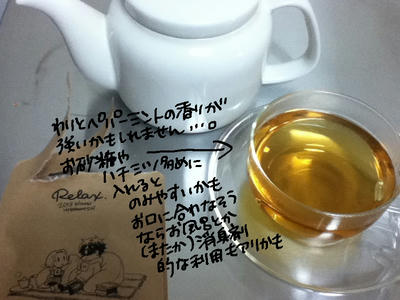 わりとペパーミントの香りが
強いかもしれません…。
お砂糖や
ハチミツ多めに
入れると
のみやすいかも
お口に合わなそう
ならお風呂とか
(またか)消臭剤
的な利用もアリかも
Relax.